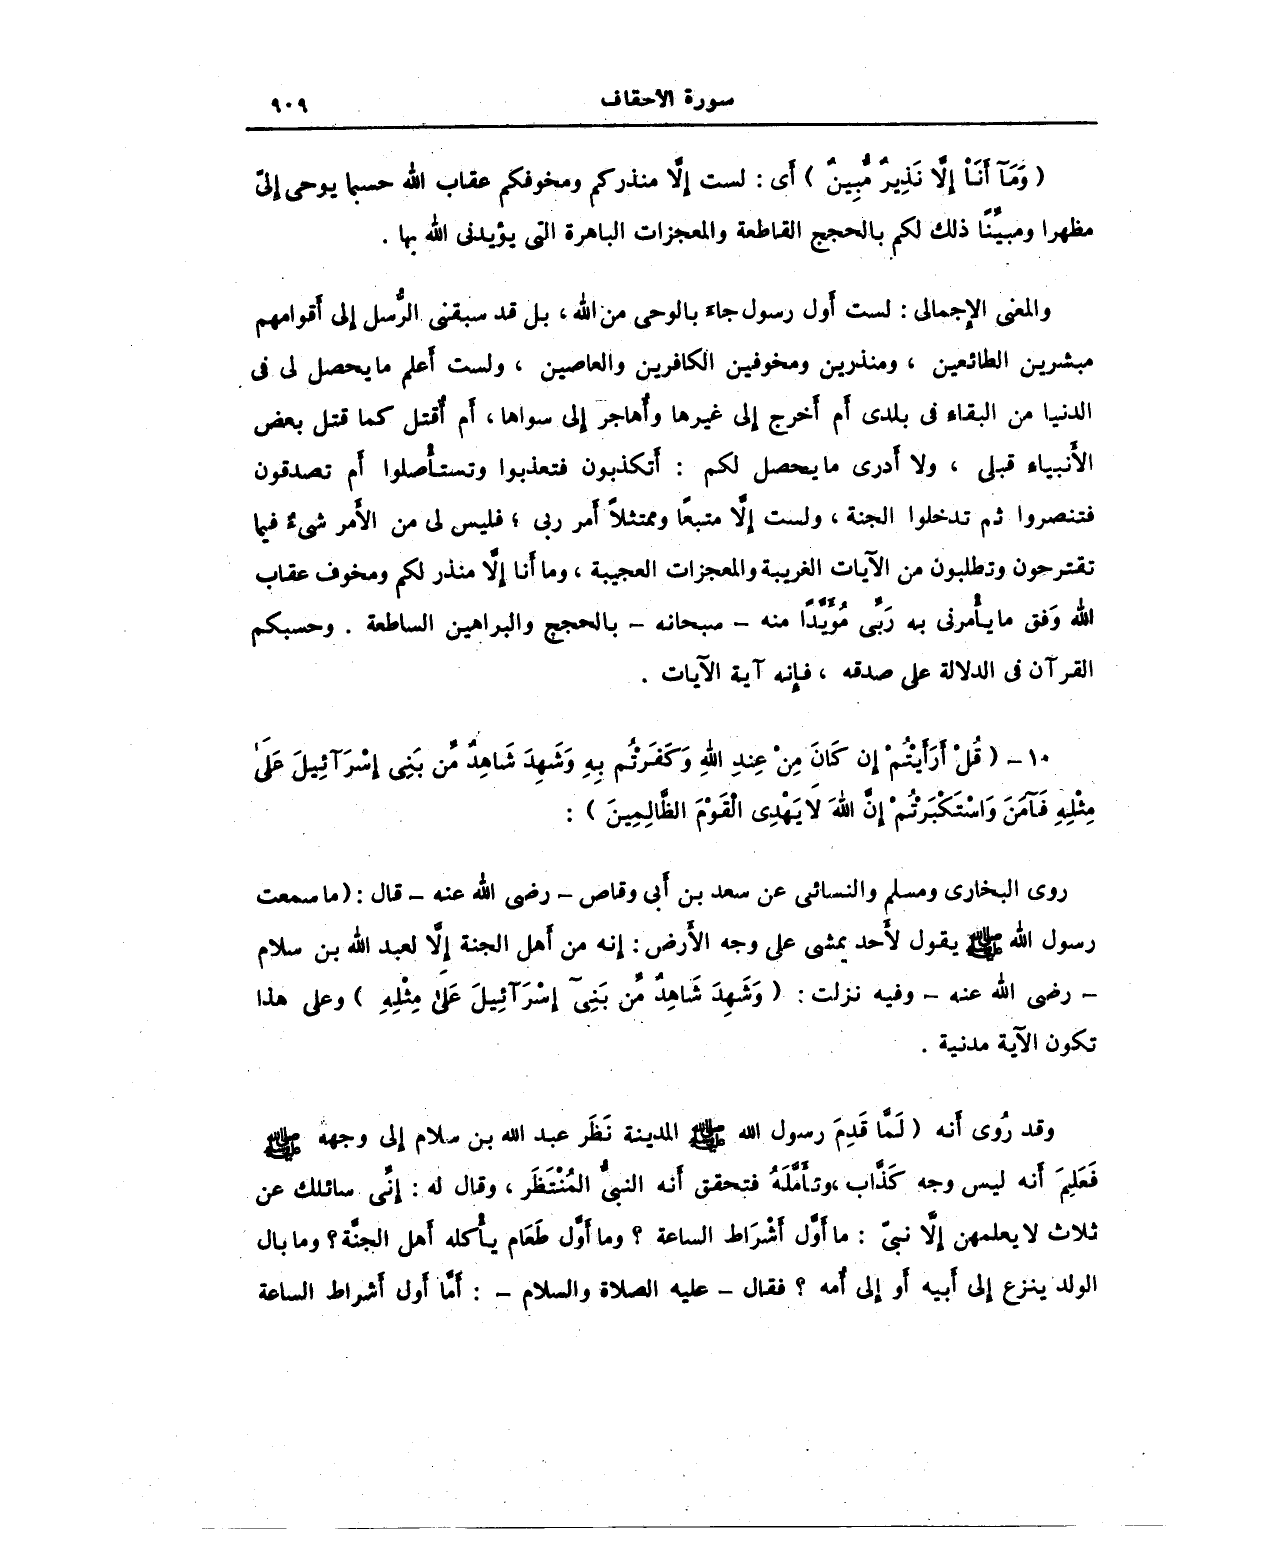 سورة الأحقاف ٩٠٩
( وَمَآ أَنَاْ إِلَّا نَذِيرٌ مُّبِينٌ ) أَى : لست إِلَّا منذركم ومخوفكم عقاب الله حسبما يوحى إِلىّ
مظهرا ومبيِّنًا ذلك لكم بالحجج القاطعة والمعجزات الباهرة التى يؤيدنى الله بها .
والمعنى الإِجمالى : لست أَول رسول جاءَ بالوحى من الله ، بل قد سبقنى الرُّسل إلى أَقوامهم
مبشرين الطائعين ، ومنذرين ومخوفين الكافرين والعاصين ، ولست أَعلم ما يحصل لى فى
الدنيا من البقاء فى بلدى أَم أَخرج إلى غيرها وأُهاجر إلى سواها ، أَم أُقتل كما قتل بعض
الأَنبياء قبلى ، ولا أَدرى ما يحصل لكم : أَتكذبون فتعذبوا وتستأْصلوا أَم تصدقون
فتنصروا ثم تدخلوا الجنة ، ولست إِلَّا متبعًا وممتثلاً أَمر ربى ؛ فليس لى من الأَمر شىءٌ فيما
تقترحون وتطلبون من الآيات الغريبة والمعجزات العجيبة ، وما أَنا إِلَّا منذر لكم ومخوف عقاب
الله وَفق ما يأْمرنى به رَبِّى مُؤَيَّدًا منه – سبحانه – بالحجج والبراهين الساطعة . وحسبكم
القرآن فى الدلالة على صدقه ، فإِنه آية الآيات .
١٠ – ( قُلْ أَرَأَيْتُمْ إِن كَانَ مِنْ عِندِ اللهِ وَكَفَرْتُم بِهِ وَشَهِدَ شَاهِدٌ مِّن بَنِى إِسْرَآئِيلَ عَلَىٰ
مِثْلِهِ فَآمَنَ وَاسْتَكْبَرْتُمْ إِنَّ اللهَ لَا يَهْدِى الْقَوْمَ الظَّالِمِينَ ) :
روى البخارى ومسلم والنسائى عن سعد بن أَبى وقاص – رضى الله عنه – قال : (ما سمعت
رسول الله ﷺ يقول لأَحد يمشى على وجه الأَرض : إنه من أَهل الجنة إِلَّا لعبد الله بن سلام
– رضى الله عنه – وفيه نزلت : ( وَشَهِدَ شَاهِدٌ مِّن بَنِىٓ إِسْرَآئِيلَ عَلَىٰ مِثْلِهِ ) وعلى هذا
تكون الآية مدنية .
وقد رُوى أَنه ( لَمَّا قَدِمَ رسول الله ﷺ المدينة نَظَر عبد الله بن سلام إلى وجهه ﷺ
فَعَلِمَ أَنه ليس وجه كَذَّاب ، وتأَمَّلَهُ فتحقق أَنه النبىُّ المُنْتَظَر ، وقال له : إِنِّى سائلك عن
ثلاث لا يعلمهن إِلَّا نبىّ : ما أَوَّل أَشْرَاط الساعة ؟ وما أَوَّل طَعَام يأْكله أَهل الجنَّة ؟ وما بال
الولد ينزع إلى أَبيه أَو إلى أُمه ؟ فقال – عليه الصلاة والسلام – : أَمَّا أَول أَشراط الساعة